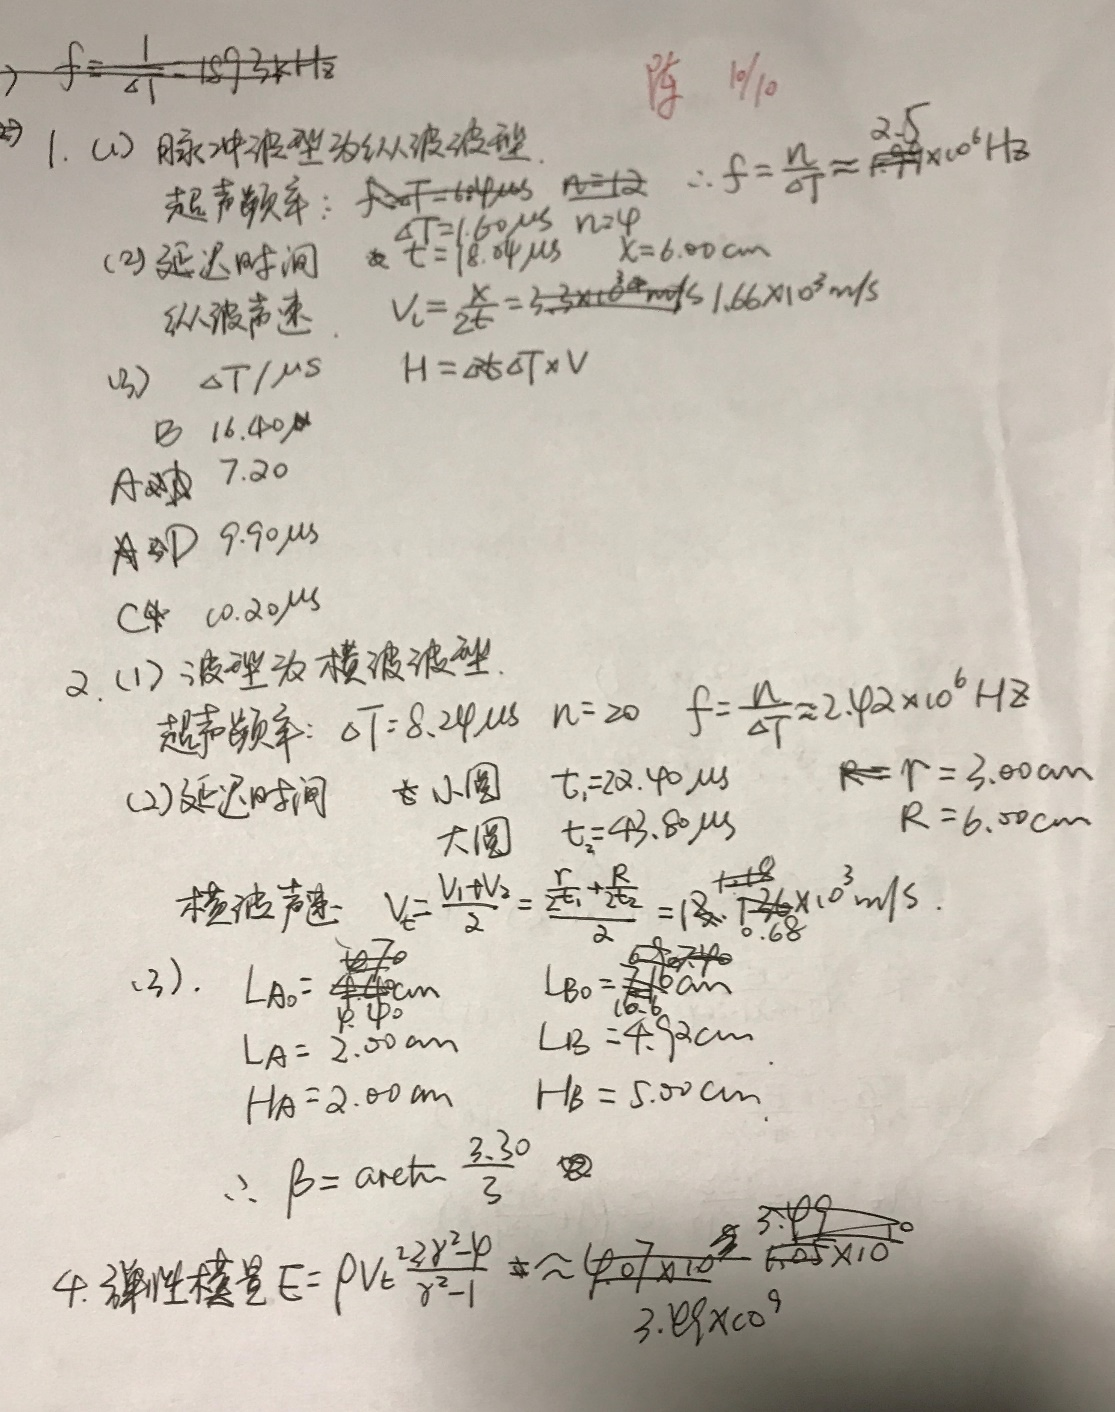 f = 1/ΔT = 1893kHz
陈 10/10
1. (1) 脉冲波型为纵波波型.
超声频率: ΔT=1.60μs n=4 ∴ f = n/ΔT ≈ 2.5×10⁶Hz
(2) 延迟时间 t=18.04μs X=6.00cm
纵波声速. V_L = X/2t = 1.66×10³m/s
(3) ΔT/μs H = ΔT×V
B 16.40
A 7.20
D 9.90μs
C 10.20μs
2. (1) 波型为横波波型.
超声频率: ΔT=8.24μs n=20 f = n/ΔT ≈ 2.42×10⁶Hz
(2) 延迟时间 小圆 t₁=22.40μs r=3.00cm
大圆 t₂=43.80μs R=6.00cm
横波声速 V_t = (V₁+V₂)/2 = (r/2t₁ + R/2t₂)/2 = 0.68×10³m/s.
(3). L_A0 = 4.40cm L_B0 = cm
L_A = 2.00cm L_B = 4.92cm
H_A = 2.00cm H_B = 5.00cm
∴ β = arctan 3.30/3
4. 弹性模量 E = ρV_t² (3γ²-4)/(γ²-1) ≈
3.49×10⁹